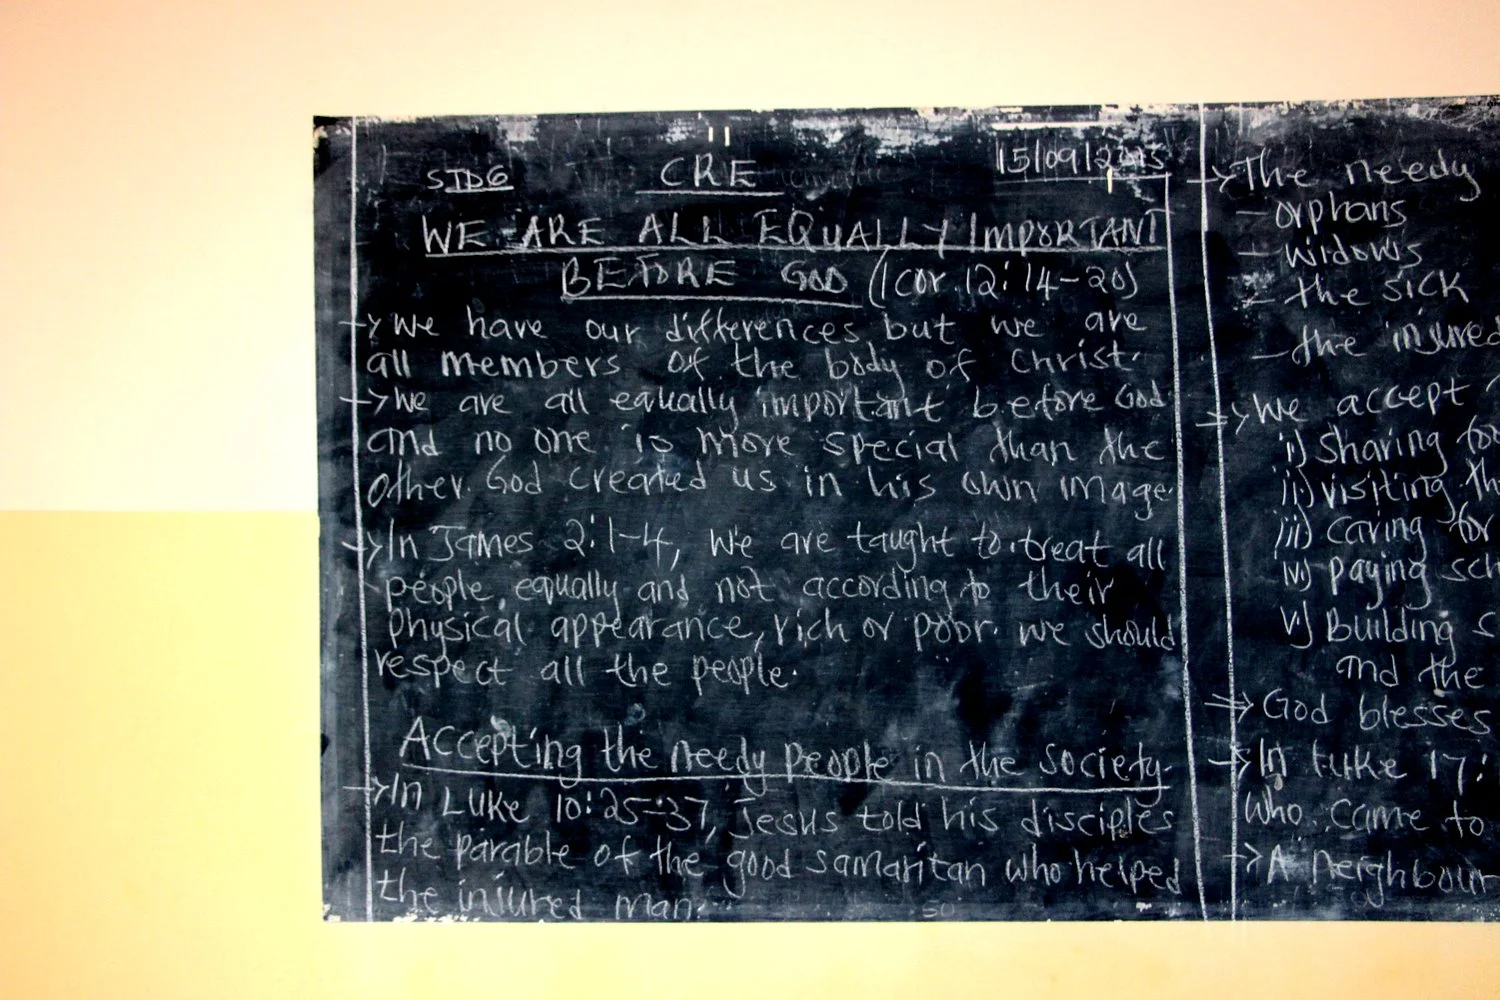 STD6 CRE 15/09/2015
WE ARE ALL EQUALLY IMPORTANT
BEFORE GOD (1 cor. 12:14-20)
→ We have our differences but we are
all members of the body of Christ.
→ We are all equally important before God
and no one is more special than the
other. God created us in his own image.
→ In James 2:1-4, we are taught to treat all
people equally and not according to their
physical appearance, rich or poor. we should
respect all the people.
Accepting the needy people in the society.
→ In Luke 10:25-37, Jesus told his disciples
the parable of the good samaritan who helped
the injured man.
→ The needy
- orphans
- widows
- the sick
- the injured
→ We accept
i) sharing
ii) visiting
iii) caring for
iv) paying
v) Building
and the
⇒ God blesses
→ In Luke 17:
who came to
→ A neighbour